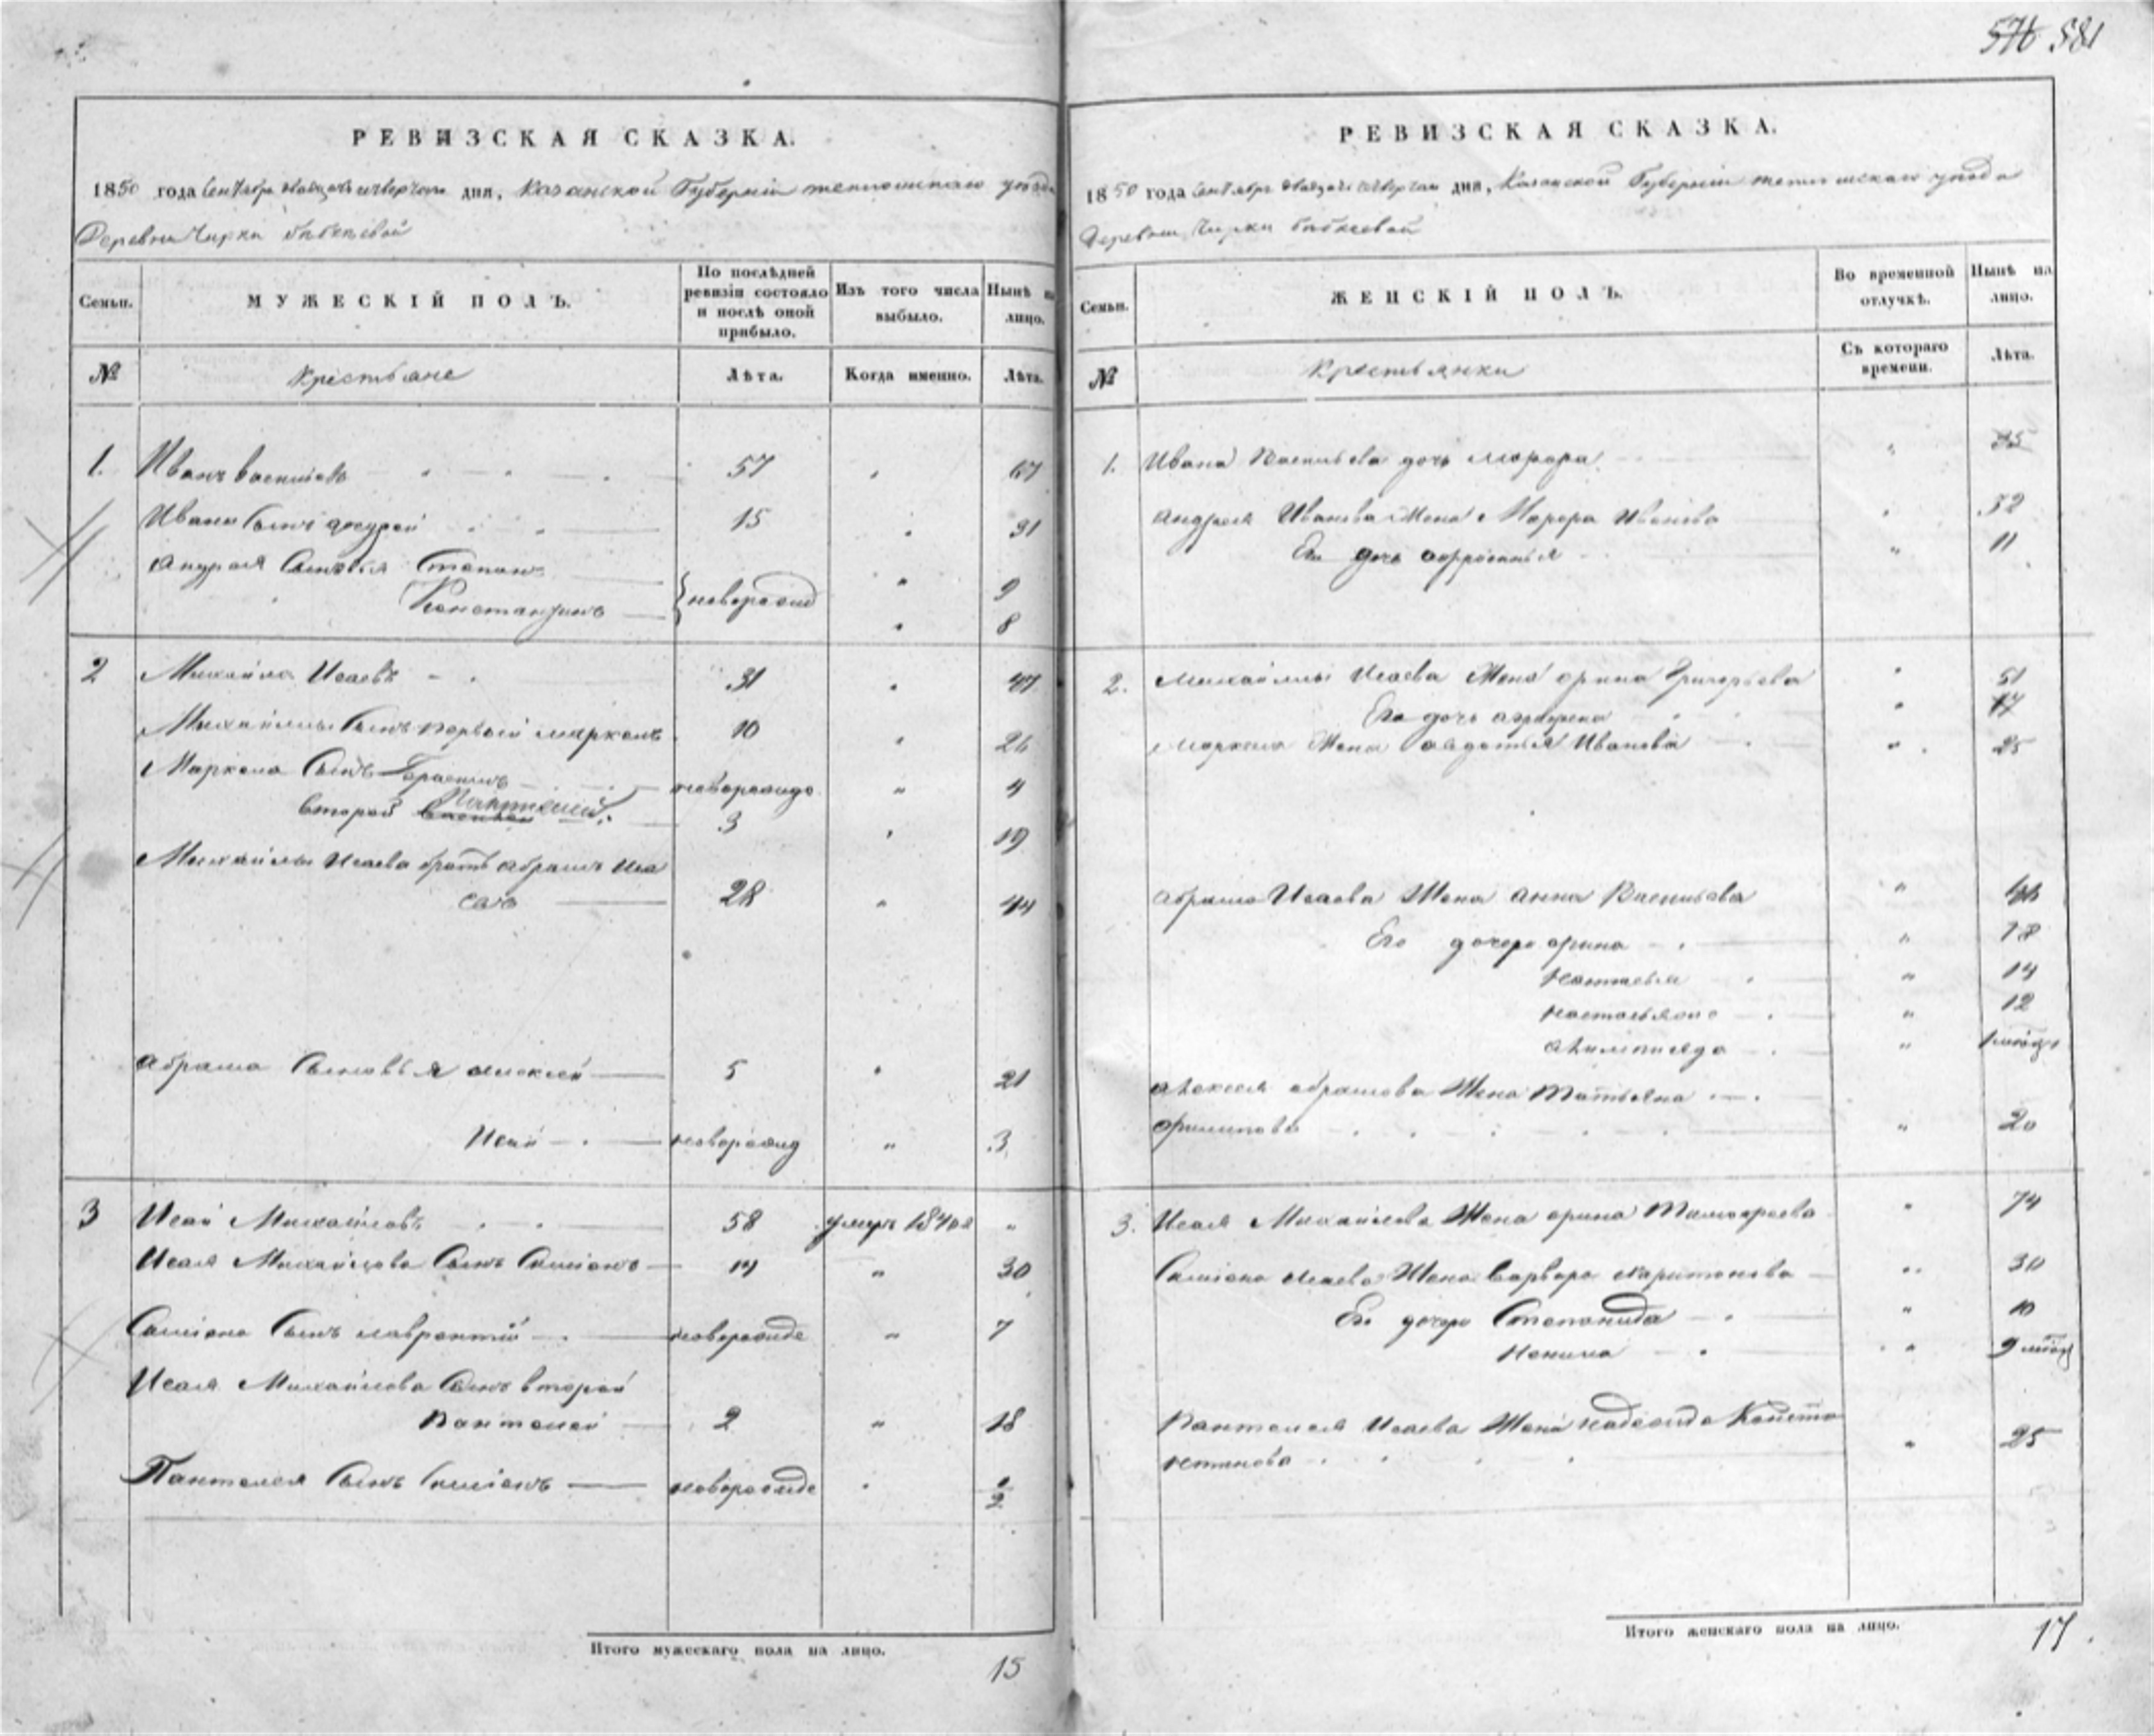 576 581
РЕВИЗСКАЯ СКАЗКА.
1850 года Сентября двадцать четвертаго дня, Казанской Губерніи тетюшскаго уезда
Деревни Чирки бебкевой
Семьи. МУЖЕСКІЙ ПОЛЪ. По послѣдней ревизіи состояло и послѣ оной прибыло. Изъ того числа выбыло. Нынѣ на лицо.
№ Крестьяне Лѣта. Когда именно. Лѣта.
1. Иванъ васильевъ 57 " 67
Ивана сынъ андрей 15 " 31
андрея Сыновья Степанъ " 9
Константинъ } новорожд " 8
2 Михайла Исаевъ 31 " 47
Михайлы Сынъ первый маркелъ 10 " 26
Маркела Сынъ Герасимъ новорожде " 4
второй Василей 3 " 19
Михайлы Исаева братъ абрамъ Иса
евъ 28 " 44
абрама Сыновья алексей 5 " 21
Исай новорожд " 3
3 Исай Михайловъ 58 умеръ 1840 "
Исая Михайлова Сынъ Симіонъ 14 " 30
Симіона Сынъ лаврентій новорожде " 7
Исая Михайлова Сынъ второй
Пантелей 2 " 18
Пантелея Сынъ Симіонъ новорожде " 1/2
Итого мужескаго пола на лицо. 15
РЕВИЗСКАЯ СКАЗКА.
1850 года Сентября двадцать четвертаго дня, Казанской Губерніи тетюшскаго уезда
Деревни Чирки бебкевой
Семьи. ЖЕНСКІЙ ПОЛЪ. Во временной отлучкѣ. Нынѣ на лицо.
№ Крестьянки Съ котораго времени. Лѣта.
1. Ивана Васильева дочь марфа " 35
андрея Иванова Жена Марфа Иванова " 32
Его дочь афросинья " 11
2. Михайлы Исаева Жена орина Григорьева " 51
Его дочь аграфена " 17
маркела Жена авдотья Иванова " 25
абрама Исаева Жена анна Васильева "
Его дочери орина " 18
Наталья " 14
настасья " 12
алимпияда "
алексея абрамова Жена Татьяна
филипова " 20
3. Исая Михайлова Жена орина Тимофеева " 74
Симіона Исаева Жена Варвара харитонова " 30
Его дочери Степанида " 10
" 9
Пантелея Исаева Жена надежда Конста
нтинова " 25
Итого женскаго пола на лицо. 17